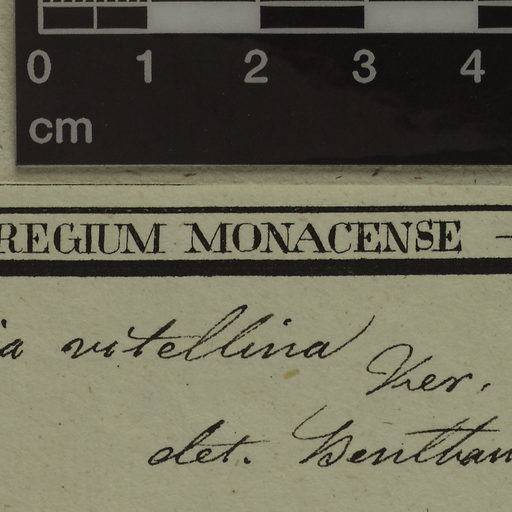 0 1 2 3 4
cm
REGIUM MONACENSE —
ia vitellina
Ker.
det. Bentham